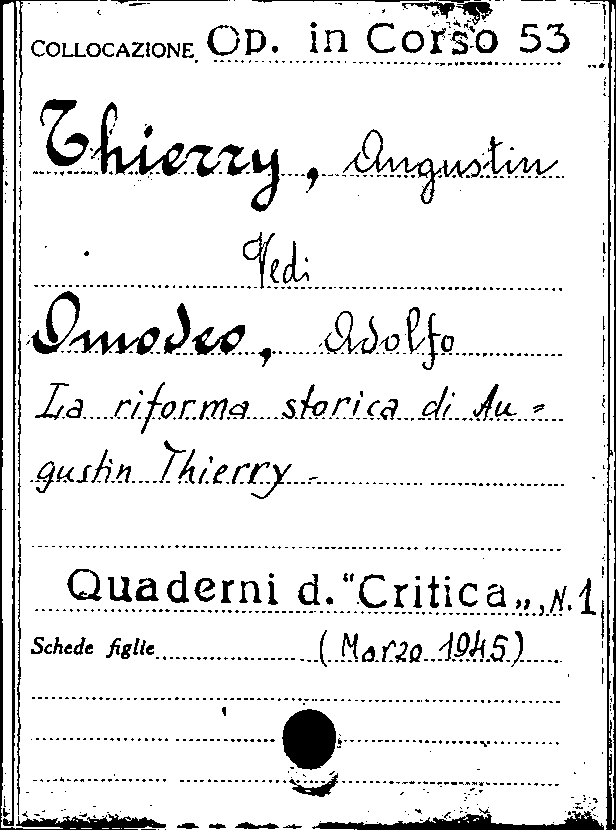 COLLOCAZIONE Op. in Corso 53
Thierry, Augustin
Vedi
Omodeo, Adolfo
La riforma storica di Au=
gustin Thierry -
Quaderni d. "Critica„, N. 1
Schede figlie (Marzo 1945)